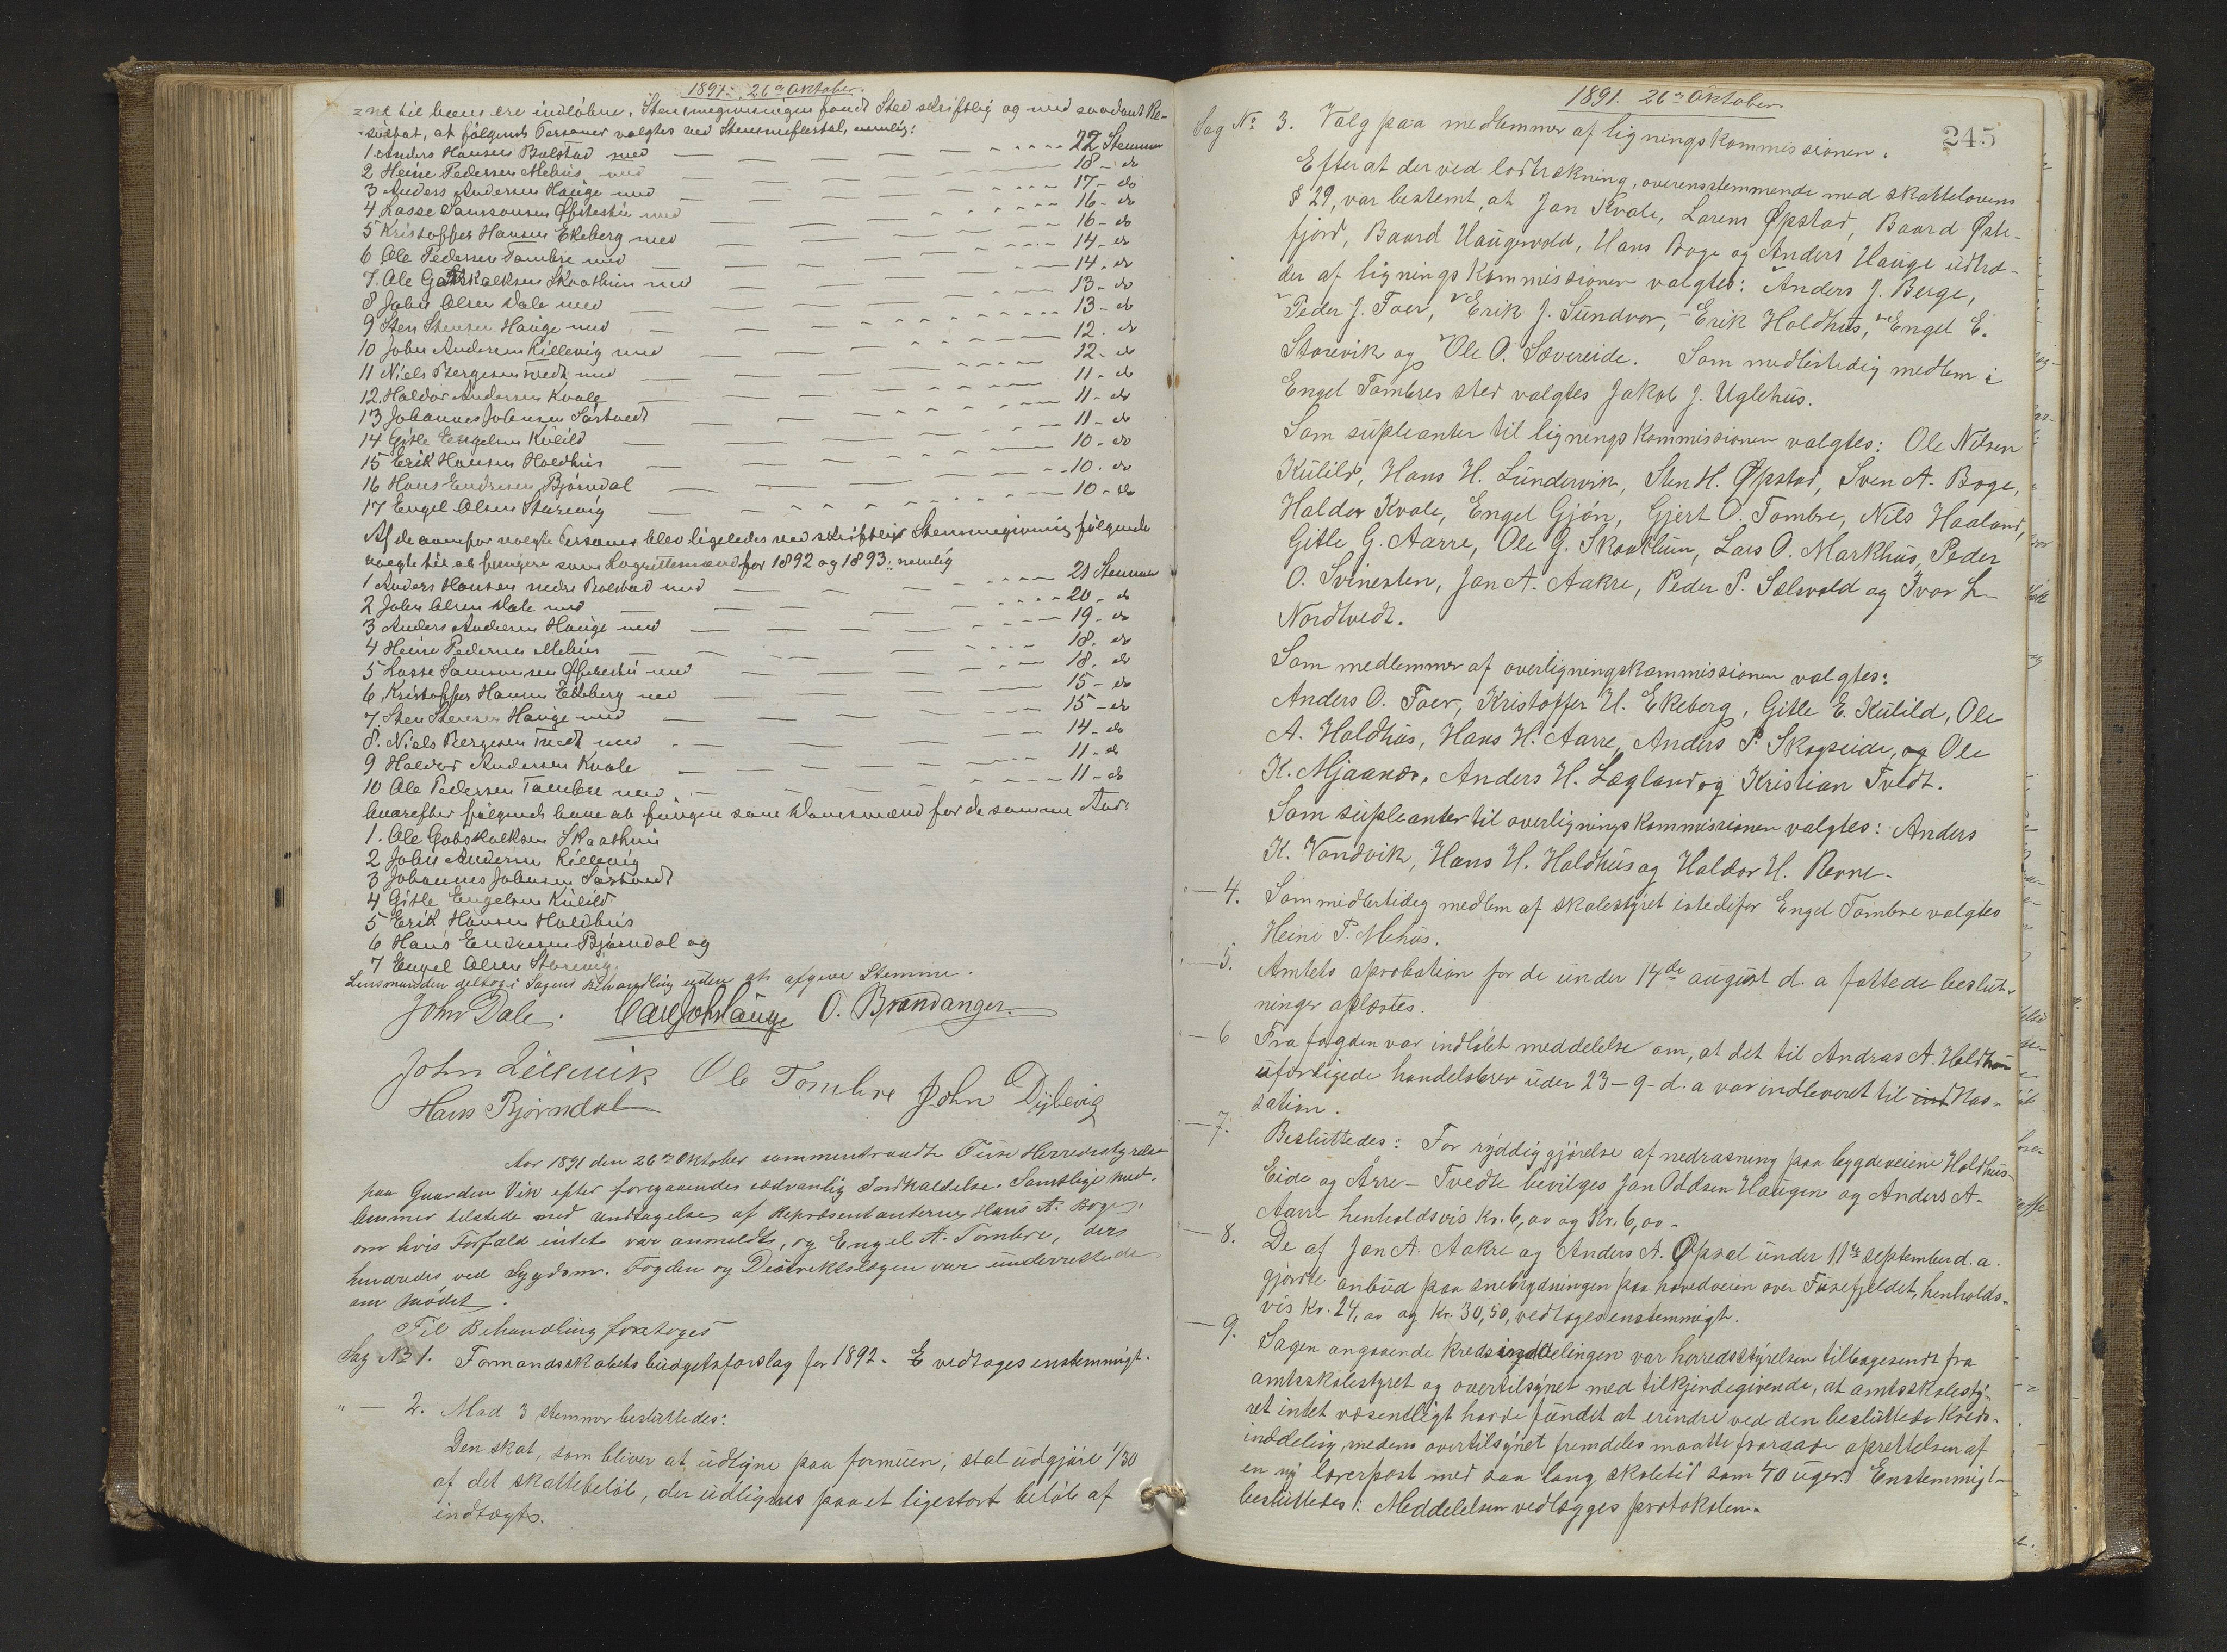 1891. 26de Oktober.
til hvem ere indløbne. Stemmegivningen fandt Sted skriftlig og med saadant Re-
sultat, at følgende Personer valgtes ved Stemmeflertal, nemlig:
1. Anders Hansen Bolstad med — 22 Stemmer
2 Heine Pedersen Mehus med — 18 - do
3 Anders Andersen Hauge med — 17 - do
4 Lasse Samsonsen med — 16 - do
5 Kristoffer Hansen Ekeberg med — 16 - do
6 Ole Pedersen Tombre med — 14 - do
7. Ole Gotskalksen Skaathun med — 14 - do
8 John Olsen Dale med — 13 - do
9 Sten Stensen Hauge med — 13 - do
10 John Andersen Lillevig med — 12 - do
11 Niels Bergesen Tvedt med — 12 - do
12. Haldor Andersen Kvale — 11 - do
13 Johannes Johnsen Sørtvedt — 11 - do
14 Gitle Engelsen Kulild — 11 - do
15 Erik Hansen Holdhus — 10 - do
16 Hans Endresen Bjørndal — 10 - do
17 Engel Olsen Storevig — 10 - do
Af de ovenfor valgte Personer blev ligeledes ved skriftlig Stemmegivning følgende
valgte til at fungere som Lagrettemænd for 1892 og 1893: nemlig
1 Anders Hansen nedre Bolstad med — 21 Stemmer
2 John Olsen Dale med — 20 - do
3 Anders Andersen Hauge med — 19 - do
4 Heine Pedersen Mehus — 18 - do
5 Lasse Samsonsen med — 18 - do
6 Kristoffer Hansen Ekeberg med — 15 - do
7. Sten Stensen Hauge med — 15 - do
8. Niels Bergesen Tvedt med — 14 - do
9 Haldor Andersen Kvale — 11 - do
10 Ole Pedersen Tombre med — 11 - do
hvorefter følgende have at fungere som Domsmænd for de samme Aar:
1. Ole Gotskalksen Skaathun
2 John Andersen Lillevig
3 Johannes Johnsen Sørtvedt
4 Gitle Engelsen Kulild
5 Erik Hansen Holdhus
6 Hans Endresen Bjørndal og
7 Engel Olsen Storevig.
Lensmanden deltog i Sagens Behandling uden at afgive Stemme.
John Dale. O. Brandanger.
John Lillevik Ole Tombre John Dybevig
Hans Bjørndal
Aar 1891 den 26de Oktober sammentraadte Fuse Herredsstyrelse
paa Gaarden Vik efter foregaaende sædvanlig Indkaldelse. Samtlige med-
lemmer tilstede med undtagelse af Repræsentanterne Hans A. Boge,
om hvis Forfald intet var anmeldt, og Engel A. Tombre, der
hindredes ved Sygdom. Fogden og Distriktslægen var underrettede
om mødet.
Til Behandling foretoges
Sag No 1. Formandsskabets budgetsforslag for 1892. E vedtoges enstemmigt.
" — 2. Mod 3 stemmer besluttedes:
Den skat, som bliver at udligne paa formuen, skal udgjøre 1/30
af det skattebeløb, der udlignes paa et ligestort beløb af
indtægt.
1891. 26de Oktober
245
Sag No 3. Valg paa medlemmer af ligningskommissionen.
Efter at der ved lodtrækning, overensstemmende med skattelovens
§ 29, var bestemt, at Jan Kvale, Larens Øpstad, Baard Øste-
fjord, Baard Haugevold, Hans Boge og Anders Hauge udtræ-
der af ligningskommissionen valgtes: Anders J. Berge,
Peder J. Foer, Erik J. Sundvor, Erik Holdhus, Engel E.
Storevik og Ole O. Sævereide. Som midlertidig medlem i
Engel Tombres sted valgtes Jakob J. Uglehus.
Som supleanter til ligningskommissionen valgtes: Ole Nilsen
Kulild, Hans H. Lundervik, Sten H. Øpstad, Sven A. Boge,
Haldor Kvale, Engel Gjøn, Gjert O. Tombre, Nils Haaland,
Gitle G. Aarre, Ole G. Skaathun, Lars O. Markhus, Peder
O. Svinesten, Jan A. Aakre, Peder P. Sælsvold og Ivar L
Nordtvedt.
Som medlemmer af overligningskommissionen valgtes:
Anders O. Foer, Kristoffer H. Ekeberg, Gitle E. Kulild, Ole
A. Holdhus, Hans H. Aarre, Anders P. Skogseide, og Ole
K. Mjaanes, Anders H. Lægland og Kristian Tvedt.
Som supleanter til overligningskommissionen valgtes: Anders
K. Vandvik, Hans H. Holdhus og Haldor H. Revne.
— 4. Som midlertidig medlem af skolestyret istedetfor Engel Tombre valgtes
Heine P. Mehus.
— 5. Amtets aprobation for de under 14de august d. a fattede beslut-
ninger oplæstes.
— 6 Fra fogden var indløbet meddelelse om, at det til Andras A. Holdhus
uførdigede handelsbrev under 23-9- d. a var indleveret til ind kas-
sation.
— 7. Besluttedes: For ryddiggjørelse af nedrasning paa bygdeveiene Holdhus-
Eide og Arre - Tvedte bevilges Jan Oddsen Haugen og Anders A.
Aarre henholdsvis Kr. 6,00 og Kr. 6,00.
— 8. De af Jan A. Aakre og Anders A. Øpsal under 11te september d. a.
gjorte anbud paa snebrydningen paa hovedveien over Fusefjeldet, henholds-
vis Kr. 24,00 og Kr. 30,50, vedtoges enstemmigt.
— 9. Sagen angaaende kredsinddelingen var herredsstyrelsen tilbagesendt fra
amtsskolestyret og overtilsynet med tilkjendegivende, at amtsskolesty-
ret intet væsentligt havde fundet at erindre ved den besluttede Kreds-
inddeling, medens overtilsynet fremdeles maatte fraraade oprettelsen af
en ny lærerpost med saa lang skoletid som 40 uger. Enstemmigt
besluttedes: Meddelelsen vedlægges protokolen.